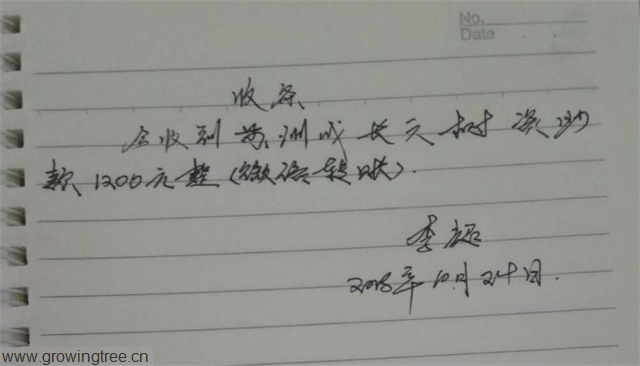 No.
Date
收条
今收到贵州成长之树资助
款1200元整(微信转账).
李超
2018年10月24日.
www.growingtree.cn